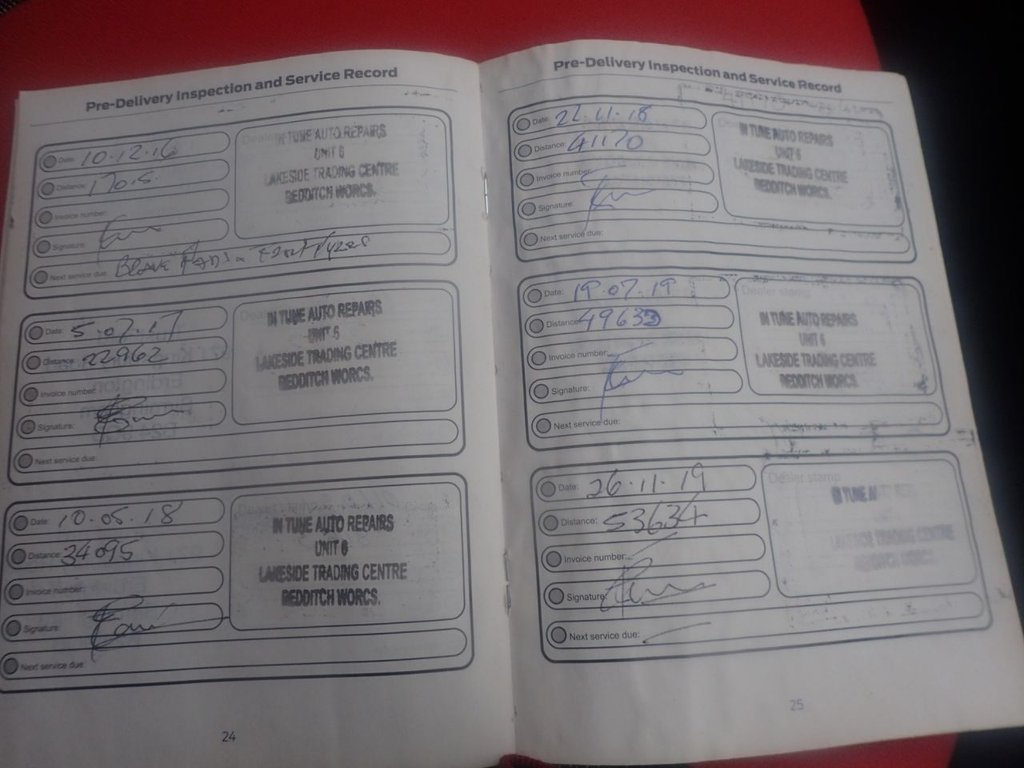 Pre-Delivery Inspection and Service Record
Date: 10.12.16
IN TUNE AUTO REPAIRS
UNIT 6
LAKESIDE TRADING CENTRE
REDDITCH WORCS.
Distance:
Invoice number:
Signature:
Next service due: Front Tyres
Date: 5.07.17
IN TUNE AUTO REPAIRS
UNIT 6
LAKESIDE TRADING CENTRE
REDDITCH WORCS.
Distance: 22962
Invoice number:
Signature:
Next service due:
Date: 10.05.18
IN TUNE AUTO REPAIRS
UNIT 6
LAKESIDE TRADING CENTRE
REDDITCH WORCS.
Distance: 34095
Invoice number:
Signature:
Next service due:
24
Pre-Delivery Inspection and Service Record
Date: 22.11.18
IN TUNE AUTO REPAIRS
UNIT 6
LAKESIDE TRADING CENTRE
REDDITCH WORCS.
Distance: 41170
Invoice number:
Signature:
Next service due:
Date: 19.07.19
Dealer stamp
IN TUNE AUTO REPAIRS
UNIT 6
LAKESIDE TRADING CENTRE
REDDITCH WORCS.
Distance: 49633
Invoice number:
Signature:
Next service due:
Date: 26.11.19
Dealer stamp
IN TUNE AUTO REPAIRS
LAKESIDE TRADING CENTRE
REDDITCH WORCS.
Distance: 53634
Invoice number:
Signature:
Next service due:
25